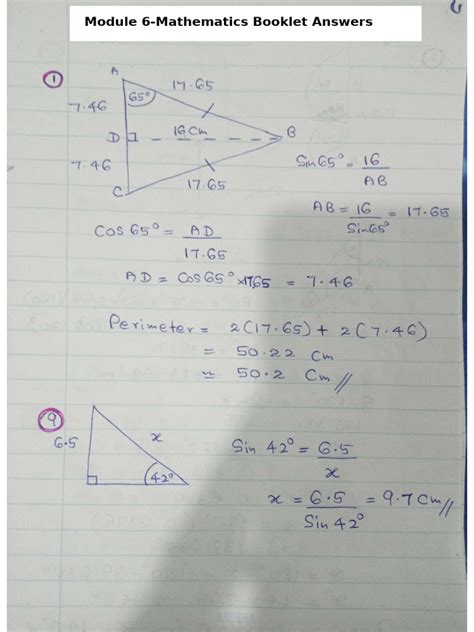 Module 6-Mathematics Booklet Answers
①
A
17.65
7.46
65°
D
16cm
B
7.46
C
17.65
Sin65° = 16/AB
AB = 16/Sin65° = 17.65
Cos 65° = AD/17.65
AD = Cos65° ×1765 = 7.46
Perimeter = 2(17.65) + 2(7.46)
= 50.22 Cm
≈ 50.2 Cm//
⑨
6.5
x
42°
Sin 42° = 6.5/x
x = 6.5/Sin 42° = 9.7Cm//